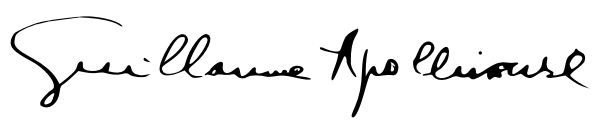 Guillaume Apollinaire